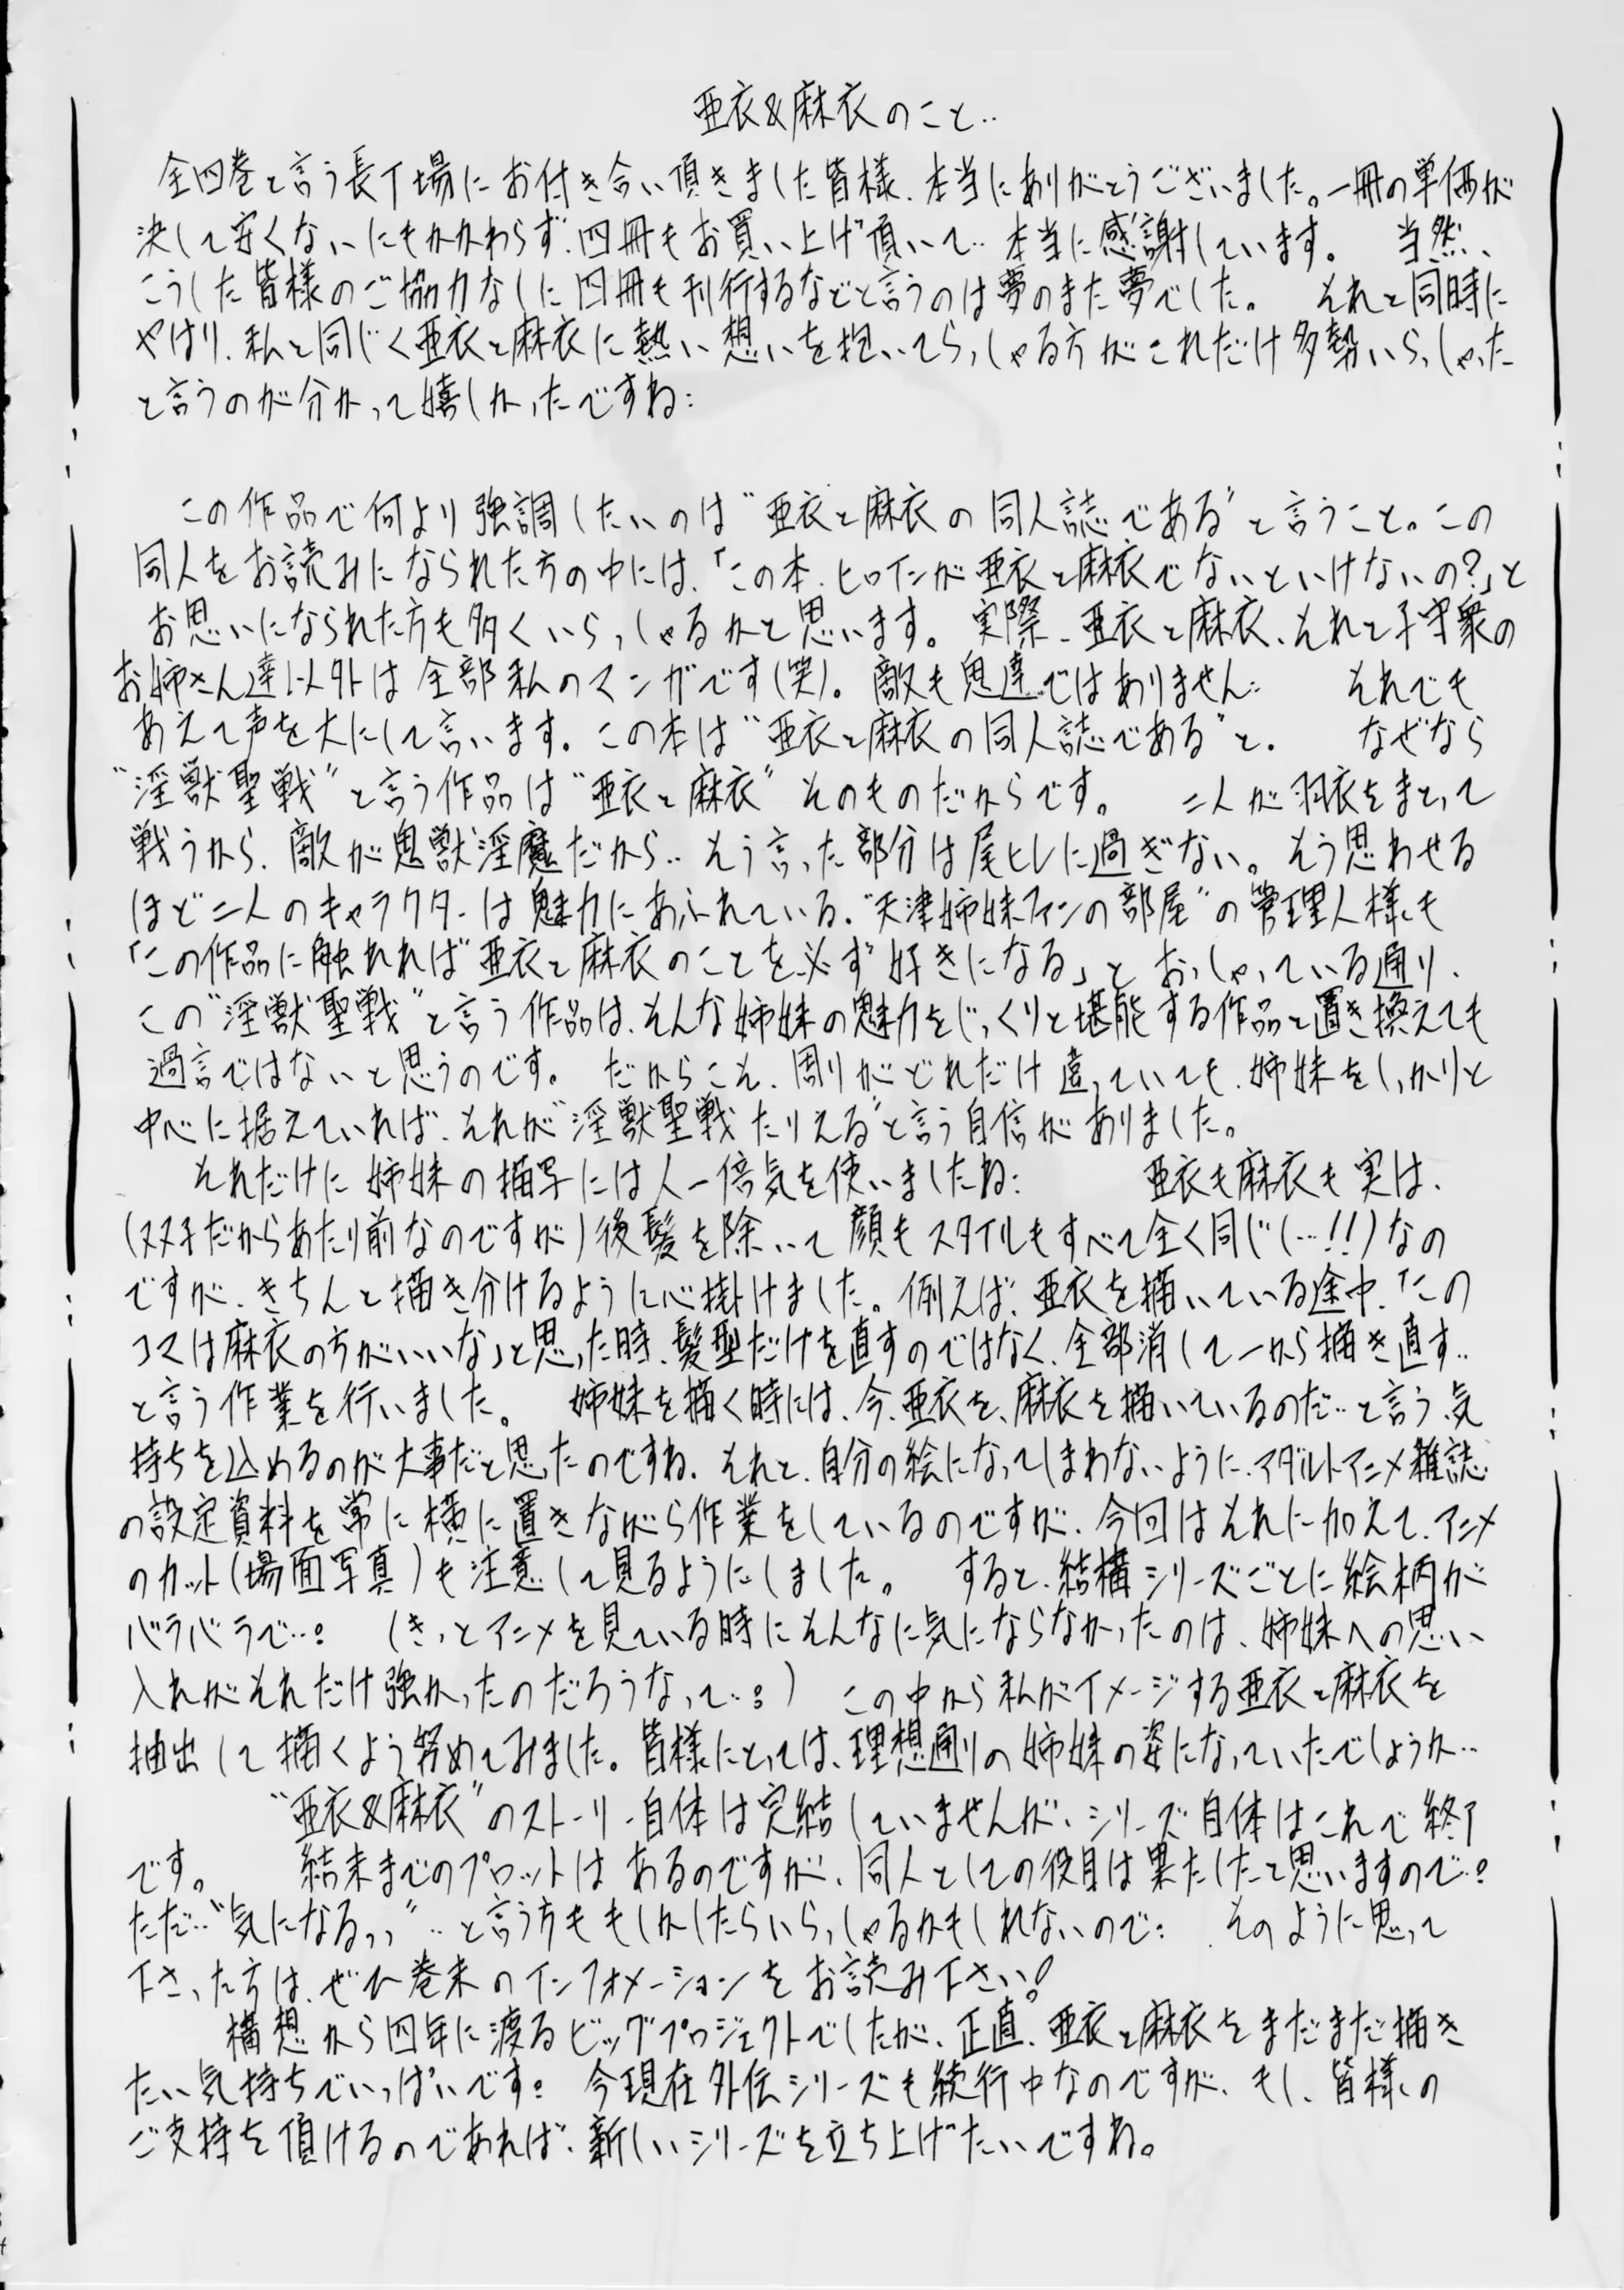 亜衣&麻衣のこと‥
全四巻と言う長丁場にお付き合い頂きました皆様、本当にありがとうございました。一冊の単価が
決して安くないにもかかわらず、四冊もお買い上げ頂いて‥本当に感謝しています。 当然、
こうした皆様のご協力なしに四冊も刊行するなどと言うのは夢のまた夢でした。 それと同時に
やはり、私と同じく亜衣と麻衣に熱い想いを抱いてらっしゃる方がこれだけ多勢いらっしゃった
と言うのが分かって嬉しかったですね‥
この作品で何より強調したいのは“亜衣と麻衣の同人誌である”と言うこと。この
同人をお読みになられた方の中には、「この本、ヒロインが亜衣と麻衣でないといけないの?」と
お思いになられた方も多くいらっしゃるかと思います。実際、亜衣と麻衣、それと子守衆の
お姉さん達以外は全部私のマンガです(笑)。敵も鬼達ではありません‥ それでも
あえて声を大にして言います。この本は“亜衣と麻衣の同人誌である”と。 なぜなら
“淫獣聖戦”と言う作品は“亜衣と麻衣”そのものだからです。 二人が羽衣をまとって
戦うから、敵が鬼獣淫魔だから‥そう言った部分は尾ヒレに過ぎない。そう思わせる
ほど二人のキャラクターは魅力にあふれている。“天津姉妹ファンの部屋”の管理人様も
「この作品に触れれば亜衣と麻衣のことを必ず好きになる」とおっしゃっている通り、
この“淫獣聖戦”と言う作品は、そんな姉妹の魅力をじっくりと堪能する作品と置き換えても
過言ではないと思うのです。 だからこそ、周りがどれだけ違っていても、姉妹をしっかりと
中心に据えていれば、それが“淫獣聖戦たりえる”と言う自信がありました。
それだけに姉妹の描写には人一倍気を使いましたね‥ 亜衣も麻衣も実は、
(双子だからあたり前なのですが)後髪を除いて顔もスタイルもすべて全く同じ(…!!)なの
ですが、きちんと描き分けるように心掛けました。例えば、亜衣を描いている途中、「この
コマは麻衣の方がいいな」と思った時、髪型だけを直すのではなく、全部消して一から描き直す‥
と言う作業を行いました。 姉妹を描く時には、今、亜衣を、麻衣を描いているのだ‥と言う気
持ちを込めるのが大事だと思ったのですね。それと、自分の絵になってしまわないように、アダルトアニメ雑誌
の設定資料を常に横に置きながら作業をしているのですが、今回はそれに加えて、アニメ
のカット(場面写真)も注意して見るようにしました。 すると、結構シリーズごとに絵柄が
バラバラで…。 (きっとアニメを見ている時にそんなに気にならなかったのは、姉妹への思い
入れがそれだけ強かったのだろうなって‥。) この中から私がイメージする亜衣と麻衣を
抽出して描くよう努めてみました。皆様にとっては、理想通りの姉妹の姿になっていたでしょうか‥
“亜衣&麻衣”のストーリー自体は完結していませんが、シリーズ自体はこれで終了
です。 結末までのプロットはあるのですが、同人としての役目は果たしたと思いますので‥。
ただ‥“気になるっっ”‥と言う方ももしかしたらいらっしゃるかもしれないので‥ そのように思って
下さった方は、ぜひ巻末のインフォメーションをお読み下さい!
構想から四年に渡るビッグプロジェクトでしたが、正直、亜衣と麻衣をまだまだ描き
たい気持ちでいっぱいです。 今現在外伝シリーズも続行中なのですが、もし、皆様の
ご支持を頂けるのであれば、新しいシリーズを立ち上げたいですね。